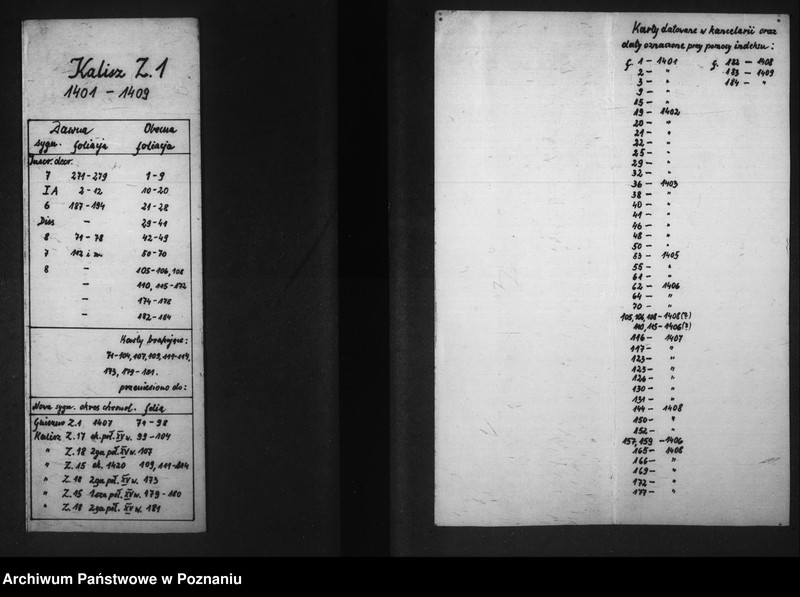 Kalisz Z.1
1401 - 1409
Dawna Obecna
sygn. foliacja foliacja
Inscr. decr.
7 271-279 1-9
I A 2-12 10-20
6 187-194 21-28
Dies - 29-41
8 71-78 42-49
7 112 i n. 50-70
8 - 105-106, 108
- 110, 115-172
- 174-178
- 182-184
Karty brakujące:
71-104, 107, 109, 111-114,
173, 179-181.
przeniesiono do:
Nowa sygn. okres chronol. folia
Gniezno Z.1 1407 71-98
Kalisz Z.17 ok. poł. XV w. 99-104
" Z.18 2ga poł. XV w. 107
" Z.15 ok. 1420 109, 111-114
" Z.18 2ga poł. XV w. 173
" Z.15 1sza poł. XV w. 179-180
" Z.18 2ga poł. XV w. 181
Karty datowane w kancelarii oraz
daty oznaczone przy pomocy indeksu:
f. 1 - 1401
2 - "
3 - "
9 - "
15 - "
19 - 1402
20 - "
21 - "
22 - "
25 - "
29 - "
32 - "
36 - 1403
38 - "
40 - "
41 - "
46 - "
48 - "
50 - "
53 - 1405
55 - "
61 - "
62 - 1406
64 - "
70 - "
105, 106, 108 - 1408 (?)
110, 115 - 1406 (?)
116 - 1407
117 - "
123 - "
125 - "
126 - "
130 - "
131 - "
144 - 1408
150 - "
152 - "
157, 159 - 1406
165 - 1408
166 - "
169 - "
172 - "
177 - "
f. 182 - 1408
183 - 1409
184 - "
Archiwum Państwowe w Poznaniu